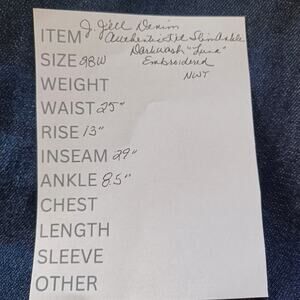 ITEM J. Jill Denim
Authentic Fit Slim Ankle
Dark wash "Luna"
SIZE 28W Embroidered
NWT
WEIGHT
WAIST 25"
RISE 13"
INSEAM 29"
ANKLE 8.5"
CHEST
LENGTH
SLEEVE
OTHER